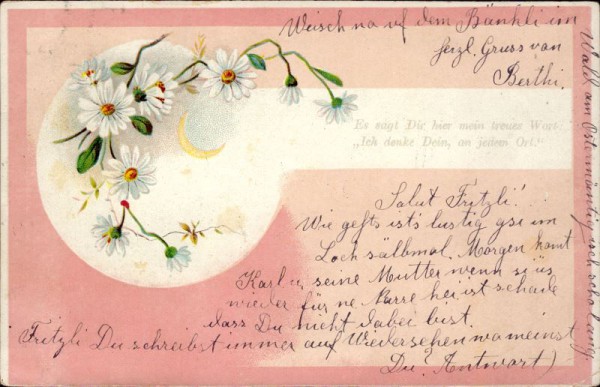 Weisch na uf dem Bänkli im
Wald am Ostermäntig isch scho lang.
herzl. Gruss van
Berthi.
Es sagt Dir hier mein treues Wort:
„Ich denke Dein, an jedem Ort."
Salut Fritzli!
Wie gehts ist's lustig gsi im
Loch sälbmal. Morgen komt
Karl u. seine Mutter wenn si üs
wieder für ne Narre hei ist schade
dass Du nicht dabei bist.
Fritzli Du schreibst immer auf Wiedersehen wo meinst
Du? Antwort)